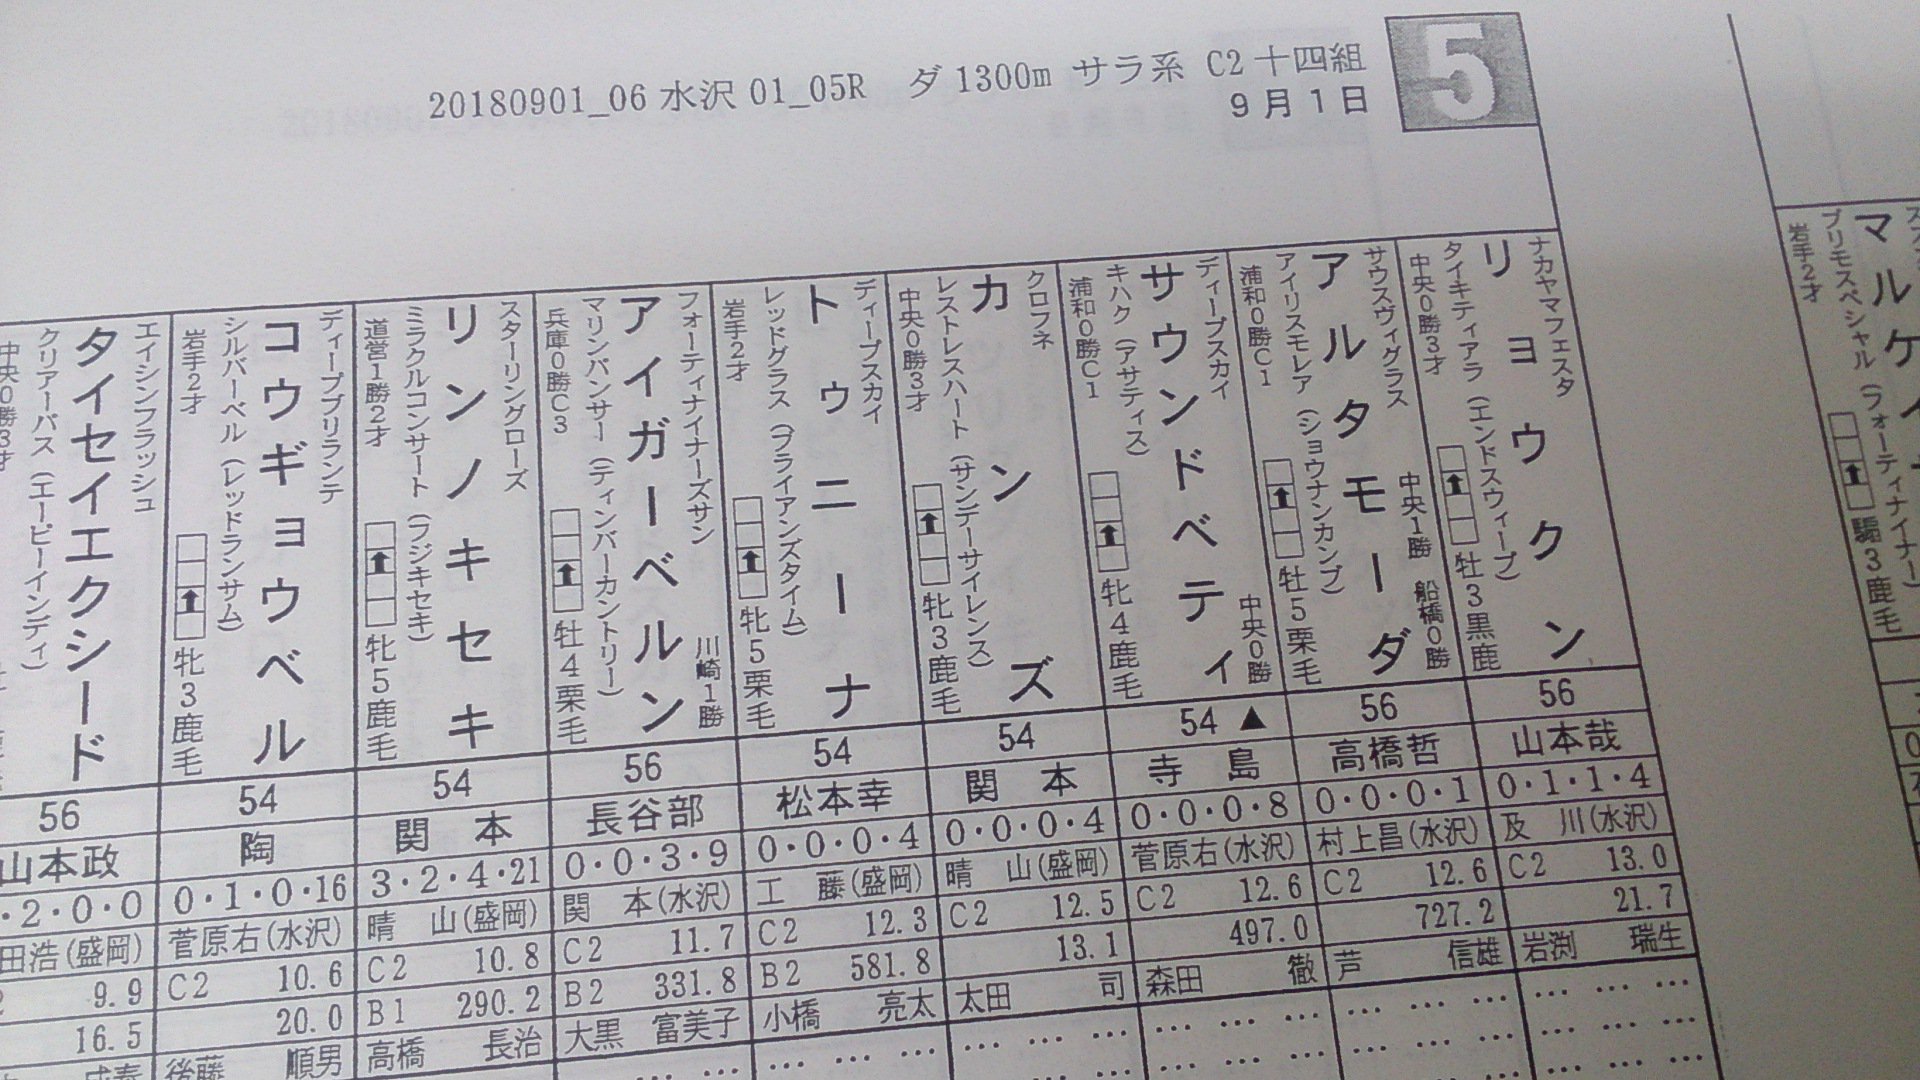 5
20180901_06 水沢 01_05R ダ 1300m サラ系 C2 十四組
9月1日
ナカヤマフェスタ
リョウクン
タイキティアラ (エンドスウィープ)
中央0勝3才
牡3黒鹿
56
山本哉
0・1・1・4
及 川(水沢)
C2 13.0
21.7
岩渕 瑞生
サウスヴィグラス
アルタモーダ
中央1勝 船橋0勝
アイリスモレア (ショウナンカンプ)
浦和0勝C1
牡5栗毛
56
高橋哲
0・0・0・1
村上昌(水沢)
C2 12.6
727.2
芦 信雄
ディープスカイ
サウンドベティ
中央0勝
キハク (アサティス)
浦和0勝C1
牝4鹿毛
54 ▲
寺 島
0・0・0・8
菅原右(水沢)
C2 12.6
497.0
森田 徹
クロフネ
カンズ
レストレスハート (サンデーサイレンス)
中央0勝3才
牝3鹿毛
54
関 本
0・0・0・4
晴 山(盛岡)
C2 12.5
13.1
太田 司
ディープスカイ
トゥニーナ
レッドグラス (ブライアンズタイム)
岩手2才
牝5栗毛
54
松本幸
0・0・0・4
工 藤(盛岡)
C2 12.3
B2 581.8
小橋 亮太
フォーティナイナーズサン
アイガーベルン
川崎1勝
マリンパンサー (ティンバーカントリー)
兵庫0勝C3
牡4栗毛
56
長谷部
0・0・3・9
関 本(水沢)
C2 11.7
B2 331.8
大黒 富美子
スターリングローズ
リンノキセキ
ミラクルコンサート (フジキセキ)
道営1勝2才
牝5鹿毛
54
関 本
3・2・4・21
晴 山(盛岡)
C2 10.8
B1 290.2
高橋 長治
ディープブリランテ
コウギョウベル
シルバーベル (レッドランサム)
岩手2才
牝3鹿毛
54
陶
0・1・0・16
菅原右(水沢)
C2 10.6
20.0
後藤 順男
エイシンフラッシュ
タイセイエクシード
クリアーパス (エーピーインディ)
中央0勝3才
56
山本政
・2・0・0
田浩(盛岡)
9.9
16.5
マルケイ
プリモスペシャル (フォーティナイナー)
岩手2才
騸3鹿毛